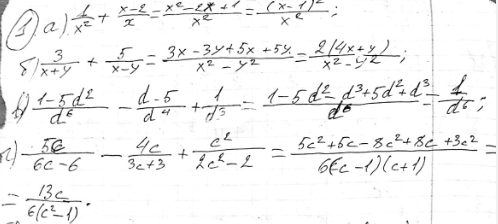 ① а) 1/x² + (x-2)/x = (x²-2x+1)/x² = (x-1)²/x²;
б) 3/(x+y) + 5/(x-y) = (3x-3y+5x+5y)/(x²-y²) = 2(4x+y)/(x²-y²);
в) (1-5d²)/d⁶ - (d-5)/d⁴ + 1/d³ = (1-5d²-d³+5d²+d³)/d⁶ = 1/d⁶;
г) 5c/(6c-6) - 4c/(3c+3) + c²/(2c²-2) = (5c²+5c-8c²+8c+3c²)/(6(c-1)(c+1)) =
= 13c/(6(c²-1)).